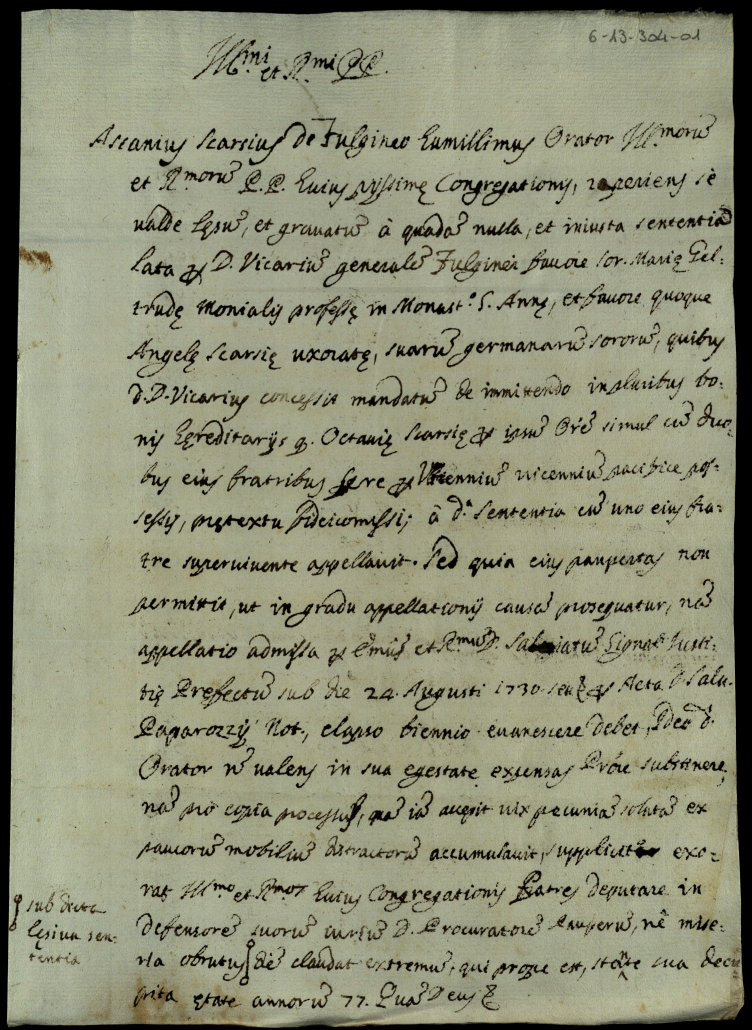 6-13-304-01
Ill.mi et R.mi PP.
Ascanius Scarsius de Fulgineo humillimus Orator Ill.moru͂
et R.moru͂ P.P. huius pijssimę Congregationis, reperiens se
valde lęsu͂, et gravatu͂ à quada͂ nulla, et iniusta sententia
lata ꝑ D. Vicariu͂ generale͂ Fulginei favore Sor. Marię Gel-
trudę Monialis professę in Monast.º S. Annę, et favore quoque
Angelę Scarsię uxoratę, suaru͂ germanaru͂ sororu͂, quibus
d. D. Vicarius concessit mandatu͂ de immittendo in pluribus bo-
nis hęreditarijs q. Octavię Scarsię ꝑ ipsu͂ Ore͂ simul cu͂ duo-
bus eius fratribus fere ꝑ vicenniu͂ pacifice pos-
sessis, prętextu fideicomissi; à d.ª sententia cu͂ uno eius fra-
tre supervivente appellavit. Sed quia eius paupertas non
permittit, ut in gradu appellationis causa͂ prosequatur, na͂
appellatio admissa ꝑ E͂mu͂ et R.mu͂ D. Signat. Iusti-
tię Prefectu͂ sub die 24. Augusti 1730. seu ꝑ Acta D. Salu.
Paparozzij Not., elapso biennio evanescere debet, Ideo d.
Orator n͂ valens in sua egestate expensas substinere,
na͂ pro copia processus, qua͂ ia͂ vix pecunia͂ soluta͂ ex
paucoru͂ mobiliu͂ distractoru͂ accumulavit, supplicat exo-
rat Ill.mos et R.mos huius Congregationis Patres deputare in
defensore͂ suoru͂ iuriu͂ D. Procuratore͂ Pauperu͂, ne͂ mise-
ria obrutus die͂ claudat extremu͂, qui prope est, sta͂te sua decre
pita ętate annoru͂ 77. Qua͂ Deus &
sub dicta
lęsiva sen-
tentia